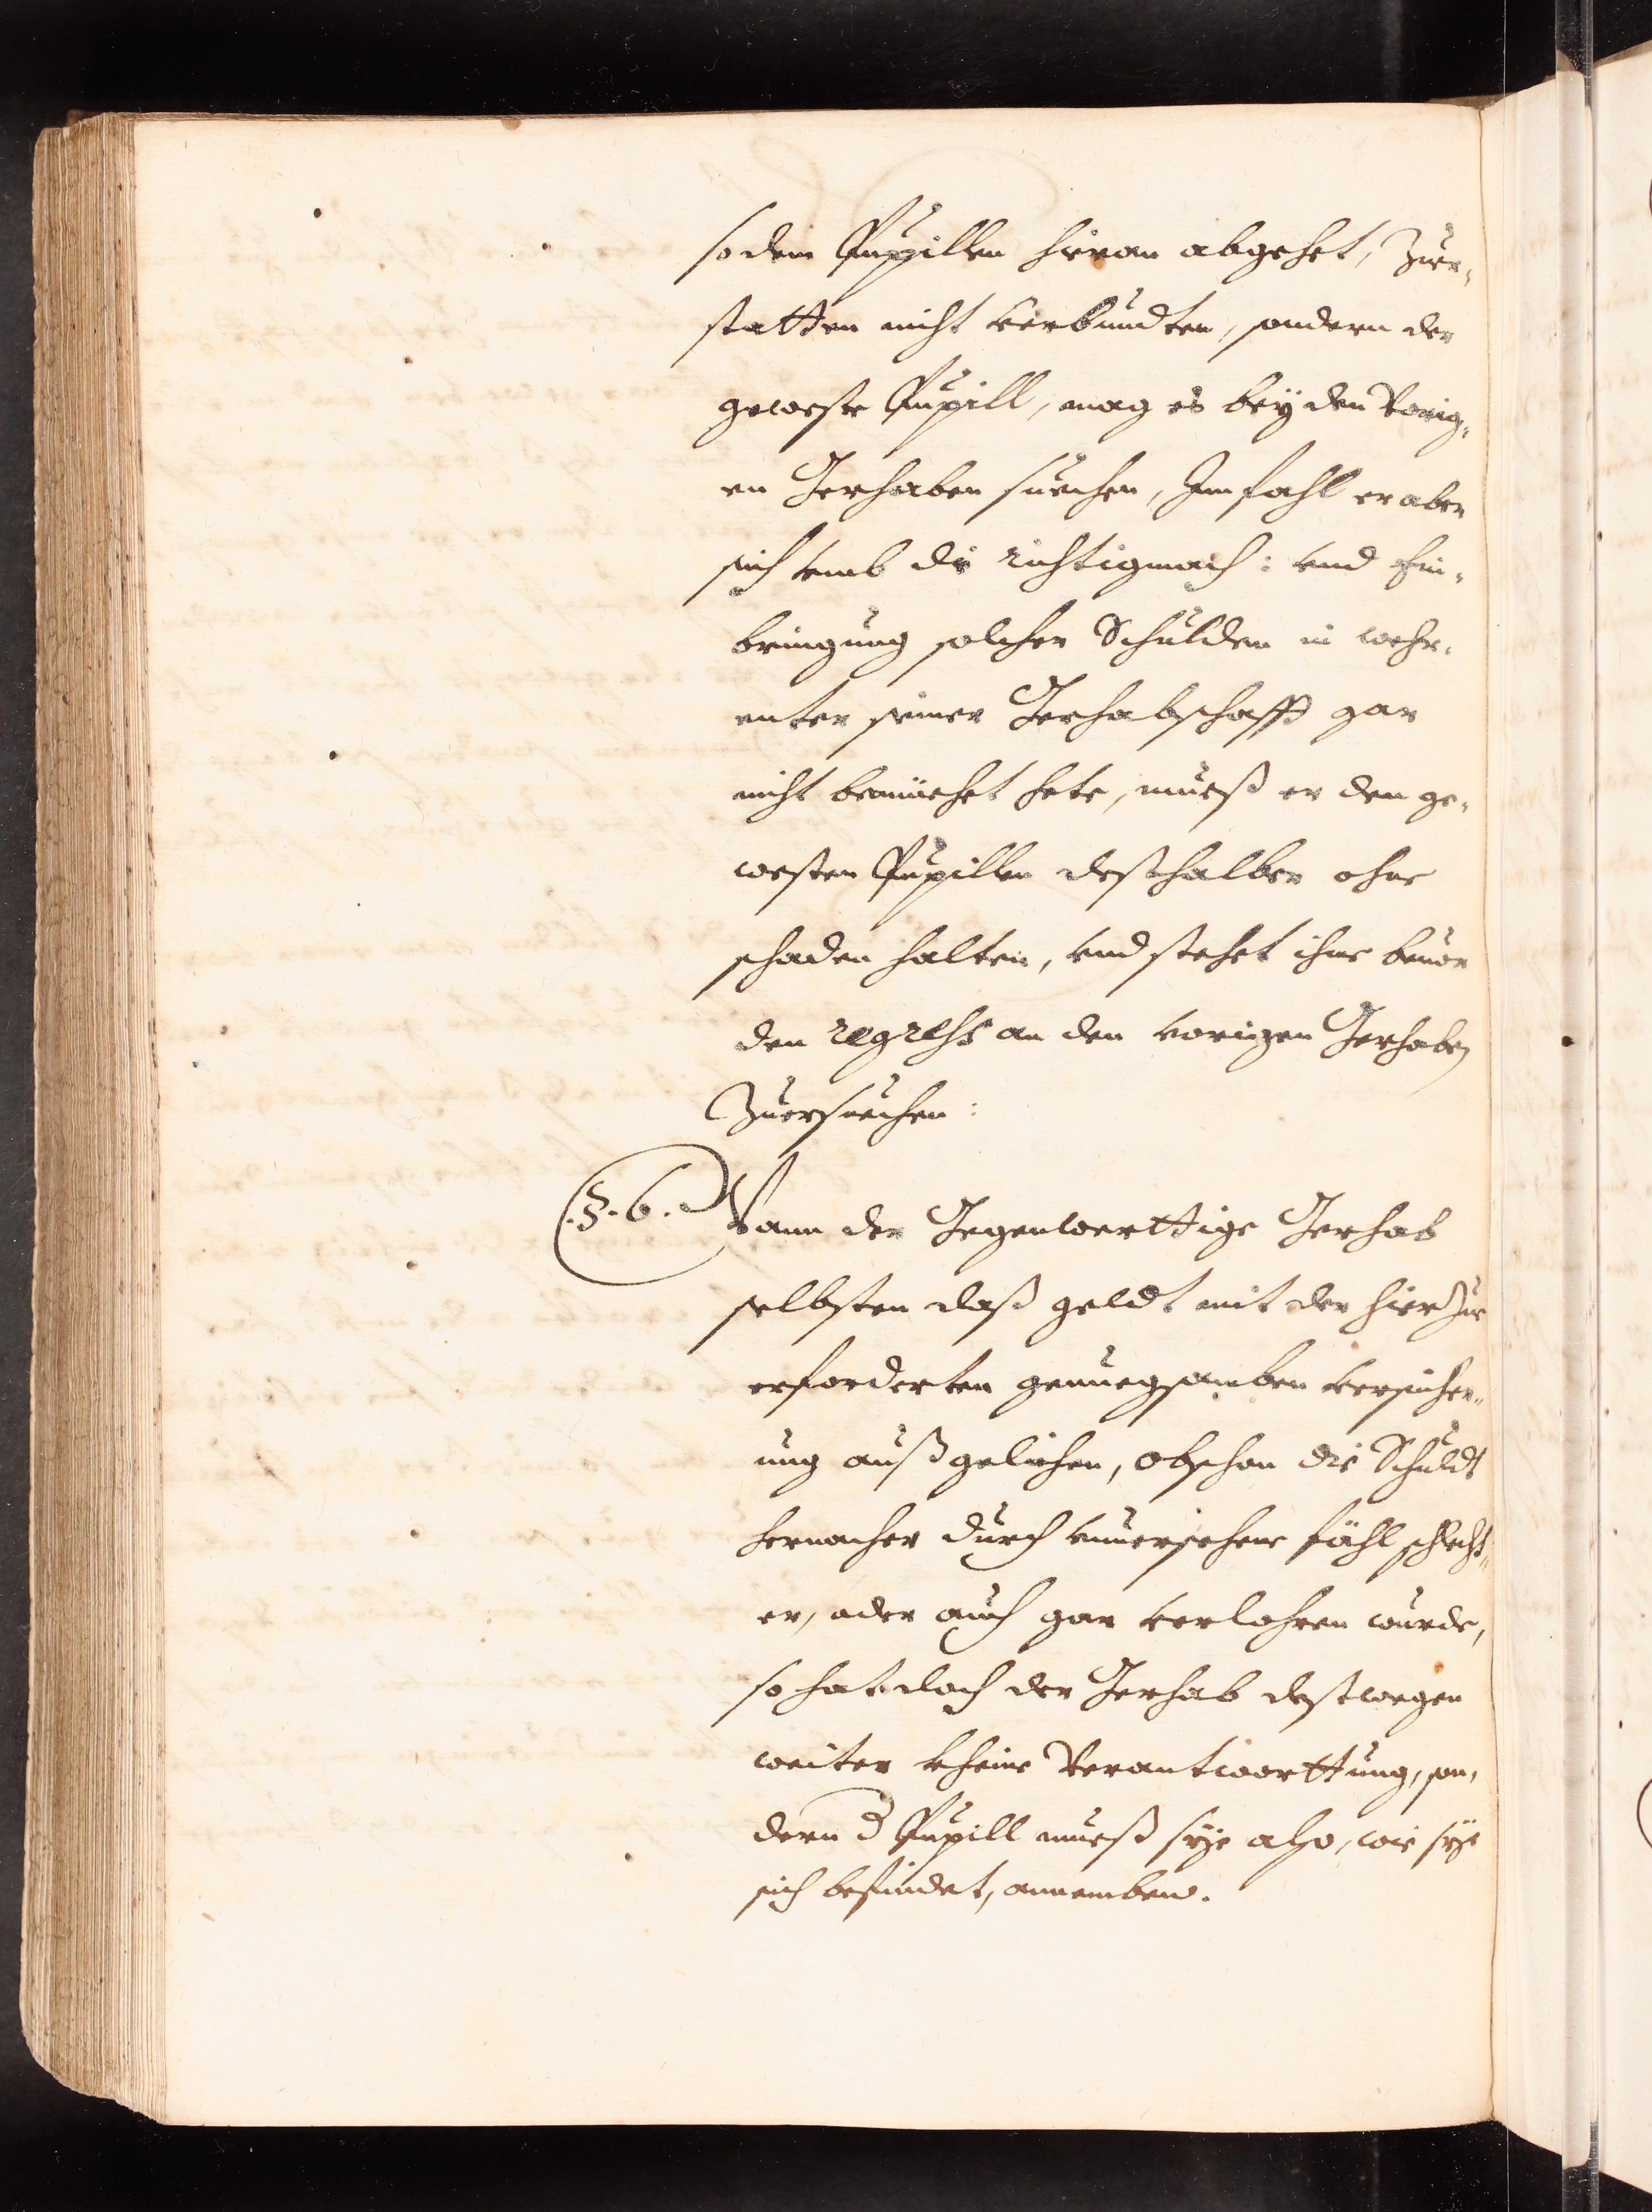 so dem Pupillen hieran abgehet, zuer¬
statten nicht verbundten, sondern der
geweste Pupill, mag es beÿ den Vorig¬
en Gerhaben suechen, Im fahl er aber
sich vmb die richtigmach: vnd Ein¬
bringung solcher Schulden in wehr¬
enter seiner Gerhabschafft gar
nicht bemüehet hete, mueß er den ge¬
westen Pupillen deßhalben ohne
schaden halten, vnd stehet ihme beuor
den regress an den vorigen Gerhaben
Zuersuechen:
§. 6. Wann der Gegenwerttige Gerhab
selbsten daß geldt mit der hierzue
erforderten genuegsamben versicher¬
ung außgelichen, obschon die Schuldt
hernacher durch vnuersehene fähl schlecht¬
er, oder auch gar verlohren wurde,
so hat doch der Gerhab destwegen
weiter kheine Verantworttung, son¬
dern d Pupill mueß sÿe also, wie sÿe
sich befindet, annemben.